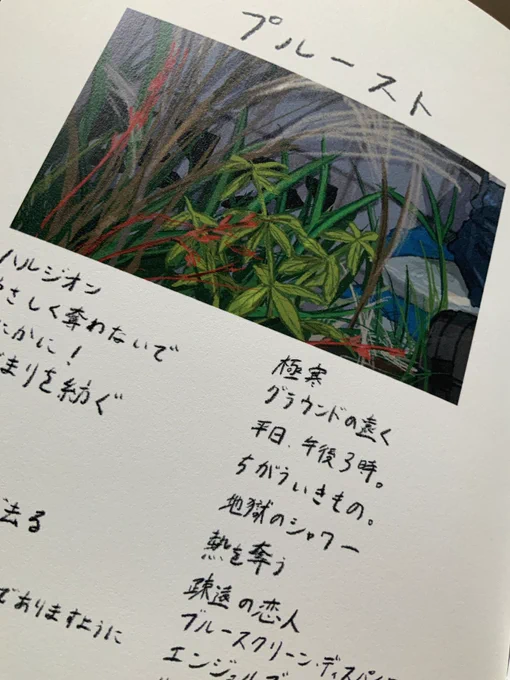 プルースト
ハルジオン
やさしく奪わないで
にかに!
まりを紡ぐ
去る
でありますように
極寒
グラウンドの遠く
平日、午後3時。
ちがういきもの。
地獄のシャワー
熱を奪う
疎遠の恋人
ブルースクリーン・ディスパ
エンジェル